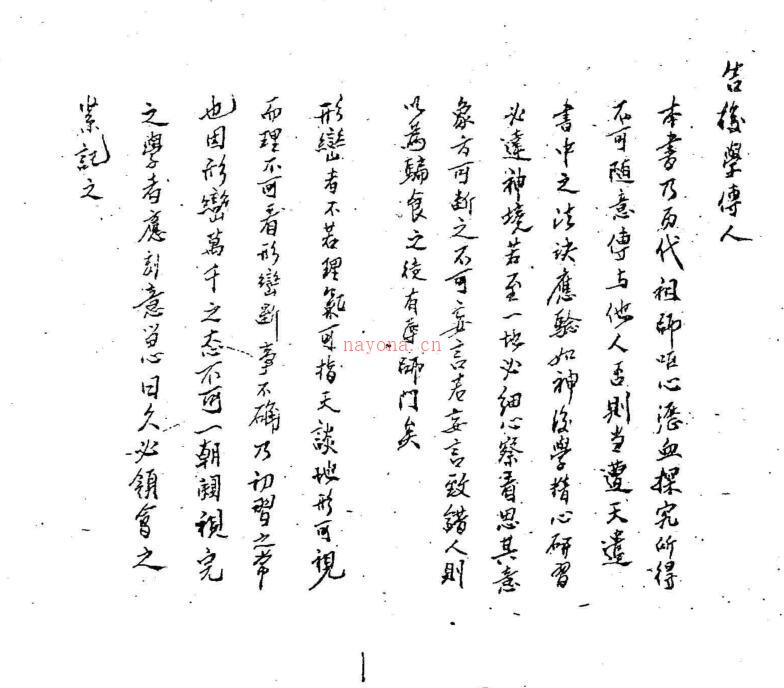 告後學傳人
本書乃历代祖師嘔心瀝血探究所得
不可随意傳与他人否則当遭天遣
書中之法诀應驗如神後學精心研習
必達神境若至一地必细心察看思其意
象方可断之不可妄言若妄言致錯人則
以為騙食之徒有辱師门矣
形巒者不若理氣可指天談地形可視
而理不可看形巒断事不确乃初習之常
也因形巒萬千之态不可一朝阅視完
之學者應刻意单心日久必領會之
紧記之
nayona.cn